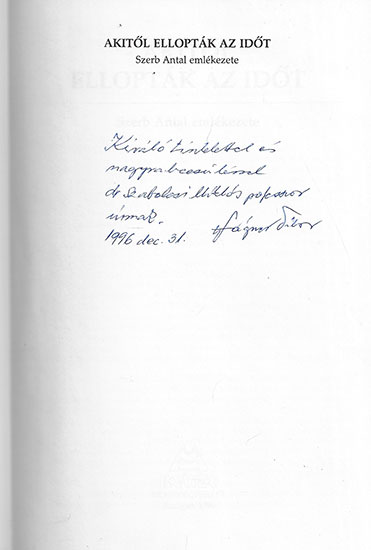 AKITŐL ELLOPTÁK AZ IDŐT
Szerb Antal emlékezete
ELLOPTÁK AZ IDŐT
Szerb Antal emlékezete
Kiváló tisztelettel és
nagyrabecsüléssel
dr Szabolcsi Miklós professor
úrnak.
1996 dec. 31. Wágner Tibor